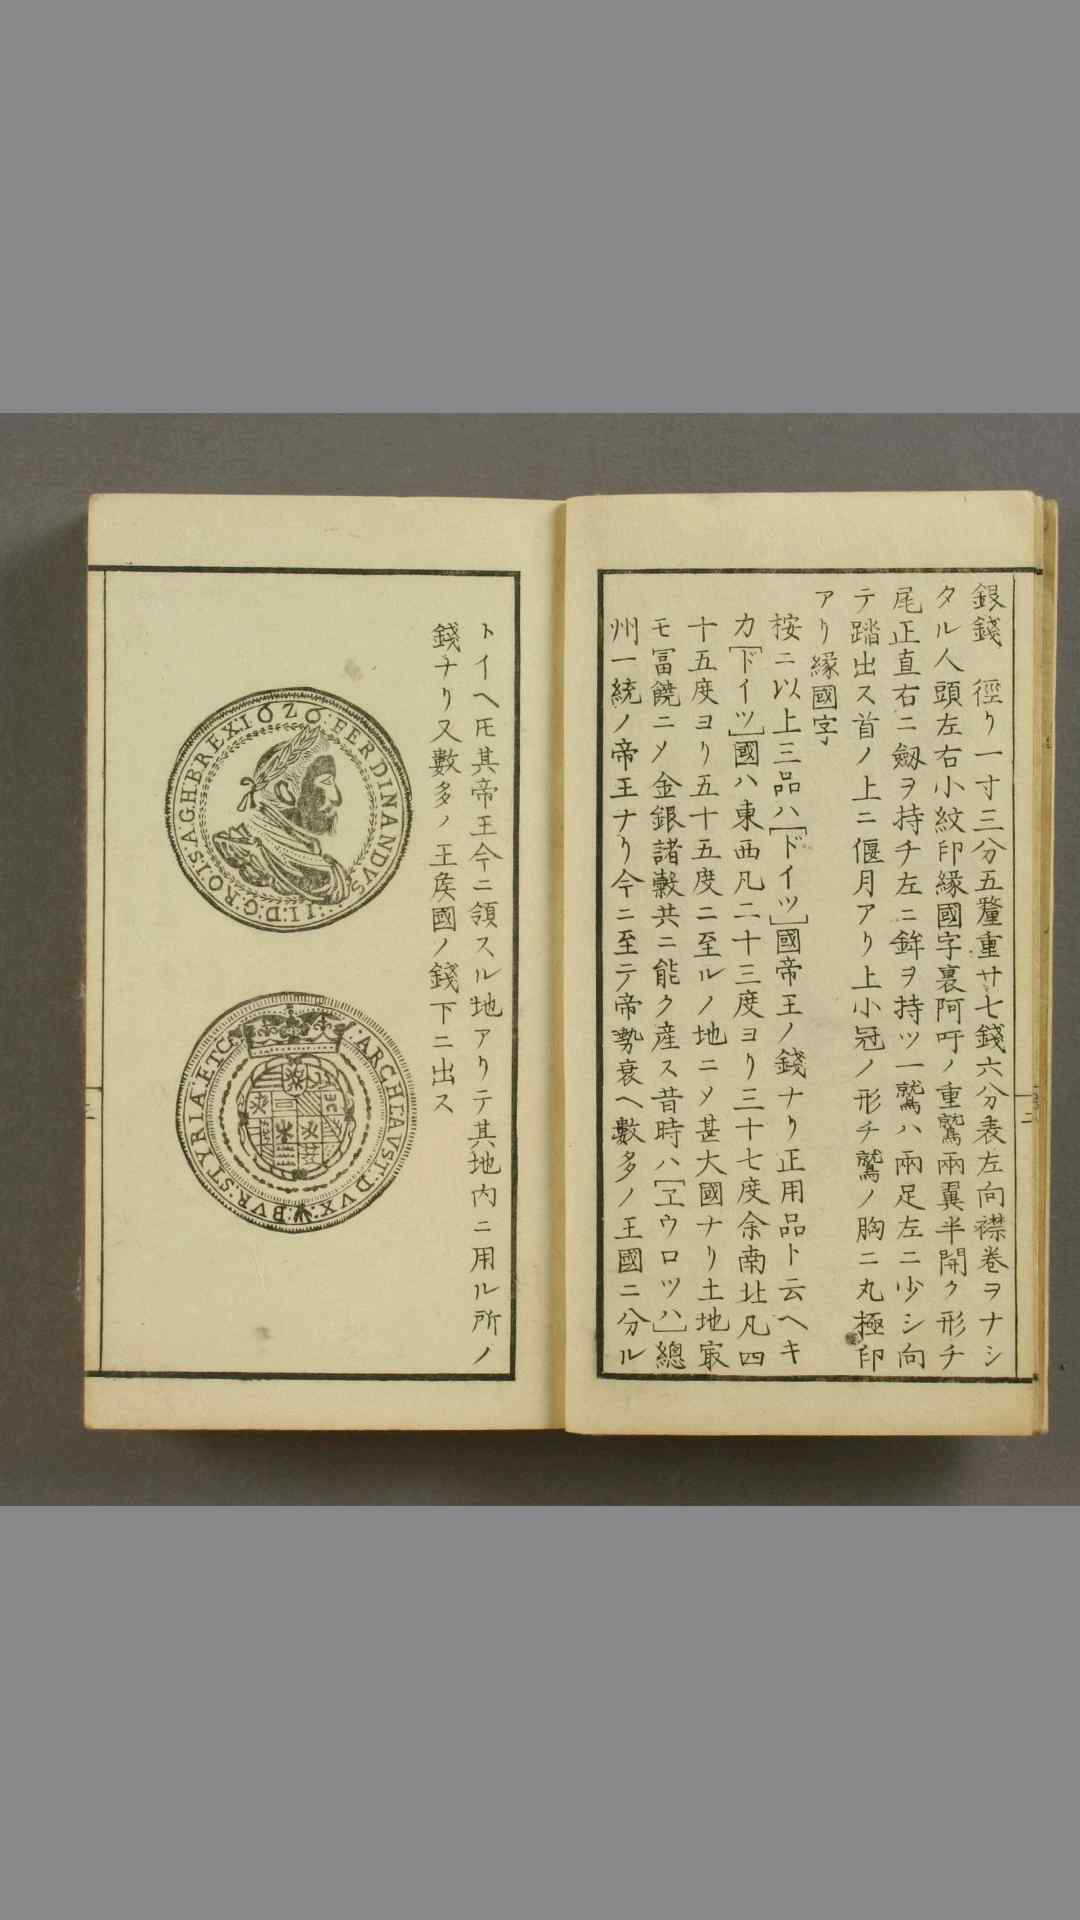 銀錢　徑り一寸三分五釐重サ七錢六分表左向襟卷ヲナシ
タル人頭左右小紋印緣國字裏阿吽ノ重鷲兩翼半開ク形チ
尾正直右ニ劔ヲ持チ左ニ鉾ヲ持ツ一鷲ハ兩足左ニ少シ向
テ踏出ス首ノ上ニ偃月アリ上小冠ノ形チ鷲ノ胸ニ丸極印
アリ緣國字
桉ニ以上三品ハ[ドイツ]國帝王ノ錢ナリ正用品ト云ヘキ
カ[ドイツ]國ハ東西凡二十三度ヨリ三十七度余南北凡四
十五度ヨリ五十五度ニ至ルノ地ニメ甚大國ナリ土地㝡
モ冨饒ニメ金銀諸糓共ニ能ク産ス昔時ハ[ヱウロツハ]總
州一統ノ帝王ナリ今ニ至テ帝勢衰ヘ數多ノ王國ニ分ル
二
トイヘ𪜈其帝王今ニ領スル地アリテ其地内ニ用ル所ノ
錢ナリ又數多ノ王矦國ノ錢下ニ出ス
1620·FERDINANDVS·II:D:G:RO:I:S:A:GH:B:REX
ARCHI:AVST:DVX:BVR:STYRIA:ETC
三